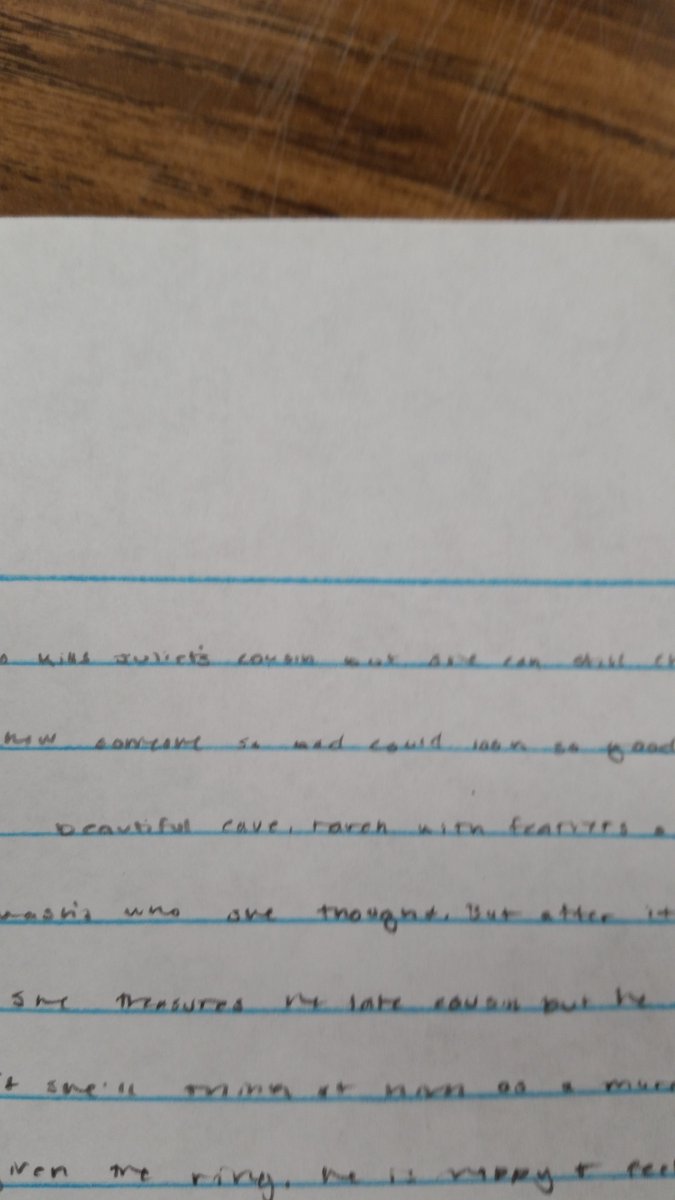 kills Juliet's cousin but she can still
how someone so bad could look so good
beautiful cave, raven with feathers
who she thought. But after it
she treasures her late cousin but he
she'll think of him as a
the ring. he is happy +